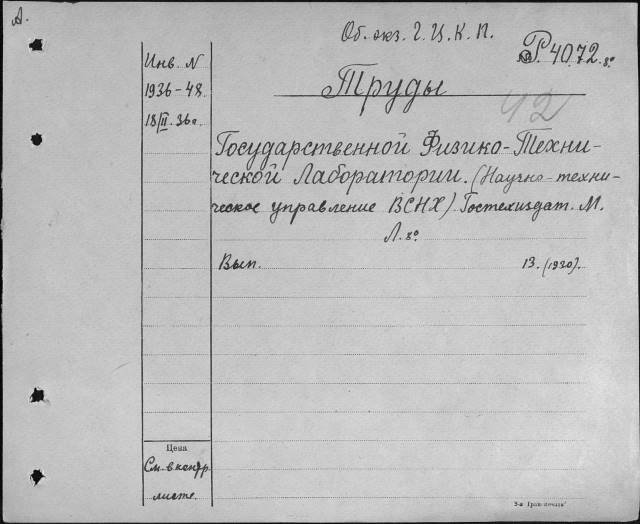 А.
Об. экз. Г. Ц. К. П.
Р. 4072. 8°
Инв. N
1936-48
18/II. 36 г.
Труды
42
Государственной Физико-Техни-
ческой Лаборатории. (Научно-техни-
ческое управление ВСНХ) Гостехиздат. М.
Л. 8°
Вып. 13. (1930).
Цена
См. в контр.
листе.